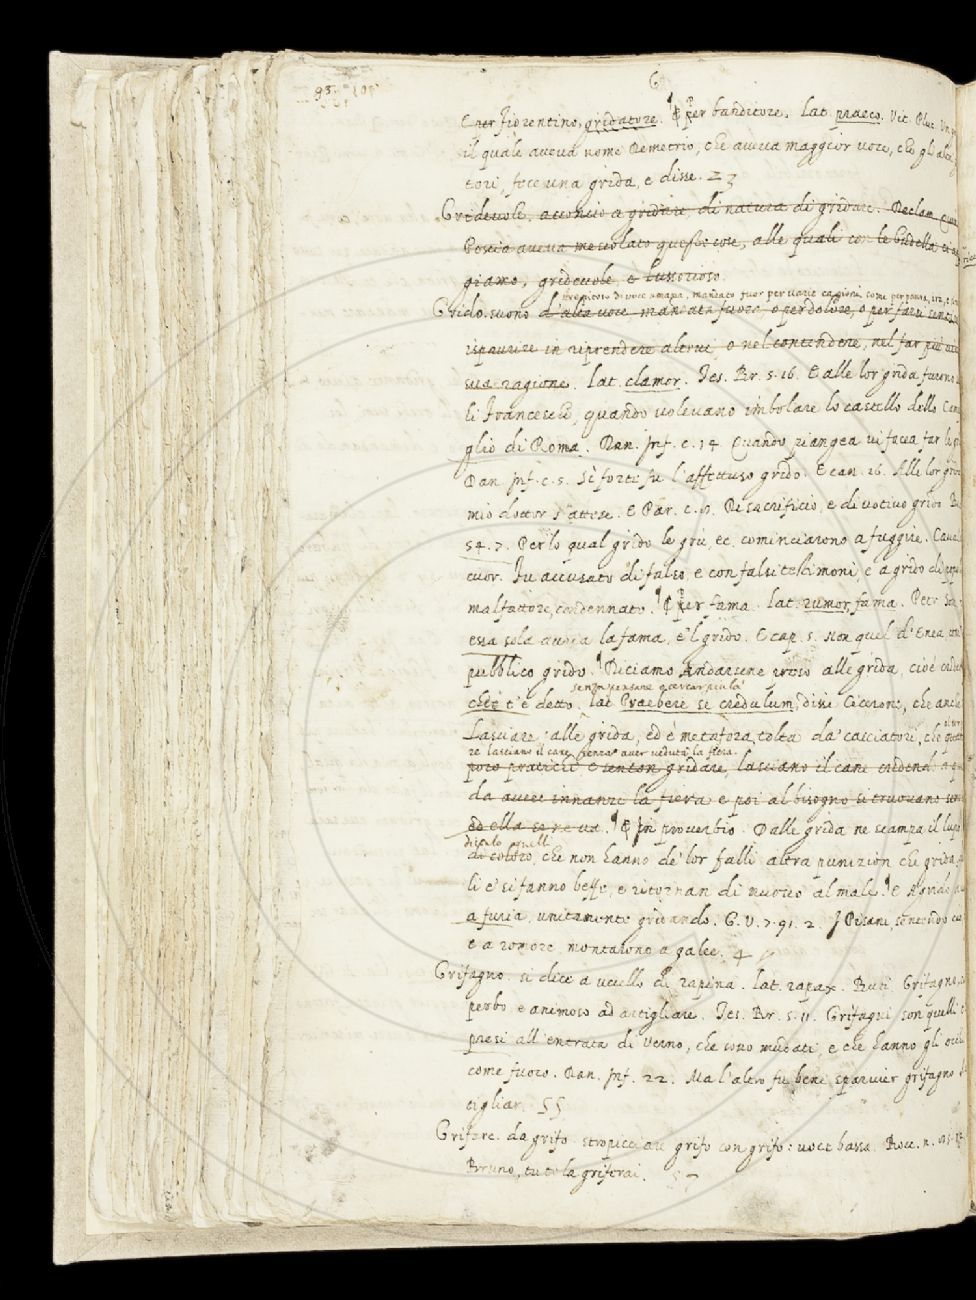 93
G
Ener Fiorentino, gridatore. ¶ Per banditore. Lat. praeco. Vit. Plut. Un
il quale aveva nome Demetrio, che aveva maggior voce, che gli altri
tori, fece una grida, e disse. 23
Gridevole. acconcio a gridare, di natura di gridare. Declam
Poscia aveva mescolato queste cose, alle quali con le budella
giamo, gridevole, e lussorioso.
strepitoso di voce umana, mandato fuor per varie cagioni, come per paura, ira, e
Grido. suono d'alta voce, mandata fuora, o per dolore, o per farsi sentire
ispaurire in riprendere altrui, o nel contendere, nel far più
sua ragione. Lat. clamor. Tes. Br. 5. 16. E alle lor grida furono
li Franceschi, quando volevano imbolare lo castello dello Campi
glio di Roma. Dan. Inf. c. 14. Quando piangea vi facea far le
Dan. Inf. c. 5. Sì forte fu l'affettuoso grido. E can. 16. Alle lor grida
mio dottor s'attese. E Par. c. 8. Di sacrificio, e di votivo grido
54. 7. Per lo qual grido le gru, ec. cominciarono a fuggire. Caval
cuor. Fu accusato di falso, e con falsi testimoni, e a grido di popolo
malfattore, condennato. ¶ Per fama. Lat. rumor, fama. Petr. Son.
essa sola avria la fama, e 'l grido. E cap. 5. Non quel d'Enea
pubblico grido. ¶ Diciamo Andarsene preso alle grida, cioè
senza pensare, o cercar più là
che t'è detto. Lat. Praebere se credulum, disse Cicerone, che anche
Lasciare alle grida, ed è metafora, tolta da' cacciatori, che
re lasciano il cane, senza aver veduta la fiera.
poco pratichi e senton gridare, lasciano il cane credendo
da avere innanzi la fiera e poi al bisogno si truovano
ed ella se ne va. ¶ In proverbio. Dalle grida ne scampa il lupo
di quelli
da coloro, che non hanno de' lor falli altra punizion che grida,
li e' si fanno beffe, e ritornan di nuovo al male. ¶ E A grida
a furia, unitamente gridando. G. V. 7. 91. 2. I Pisani, sentendo
e a romore montarono a galee. 4
Grifagno. si dice a uccello di rapina. Lat. rapax. Buti. Grifagno,
perbo e animoso ad artigliare. Tes. Br. 5. 11. Grifagni son quelli
presi all'entrata di Verno, che sono mudati, e che hanno gli occhi
come fuoco. Dan. Inf. 22. Ma l'altro fu bene sparvier grifagno
tigliar. 55
Grifare. da grifo. stropicciare grifo con grifo: voce bassa. Bocc. n.
Bruno, tu te la griferai.